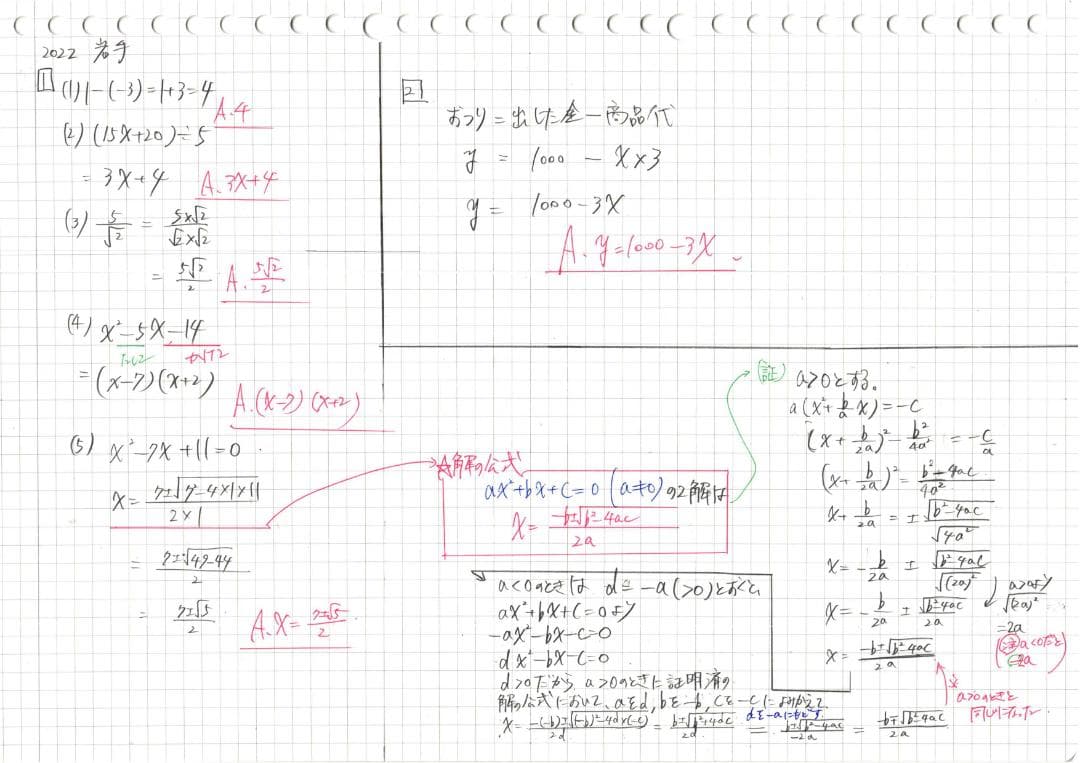 2022 岩手
1
(1) 1-(-3)=1+3=4
A.4
(2) (15x+20)÷5
=3x+4 A.3x+4
(3) 5/√2 = 5×√2/√2×√2
= 5√2/2 A. 5√2/2
(4) x²-5x-14
たして かけて
=(x-7)(x+2)
A.(x-7)(x+2)
(5) x²-7x+11=0
x= 7±√7²-4×1×11/2×1
= 7±√49-44/2
= 7±√5/2 A.x= 7±√5/2
2
おつり=出した金-商品代
y = 1000 - x×3
y = 1000-3x
A. y=1000-3x
☆解の公式
ax²+bx+c=0 (a≠0)の2解は
x= -b±√b²-4ac/2a
(証) a>0とする。
a(x²+b/a x)=-c
(x+b/2a)²-b²/4a²=-c/a
(x+b/2a)²=b²-4ac/4a²
x+b/2a=±√b²-4ac/√4a²
x=-b/2a ± √b²-4ac/√(2a)²
x=-b/2a ± √b²-4ac/2a
a>0より
√(2a)²
=2a
(注)a<0だと
-2a
x= -b±√b²-4ac/2a
※a>0のときと
同じになった
a<0のときは d=-a(>0)とおくと
ax²+bx+c=0より
-ax²-bx-c=0
dx²-bx-c=0
d>0だから a>0のときに証明済の
解の公式において、aをd,bを-b,cを-cにおきかえて
x= -(-b)±√(-b)²-4d×(-c)/2d = b±√b²+4dc/2d = b±√b²-4ac/-2a = -b∓√b²-4ac/2a
dを-aにもどす